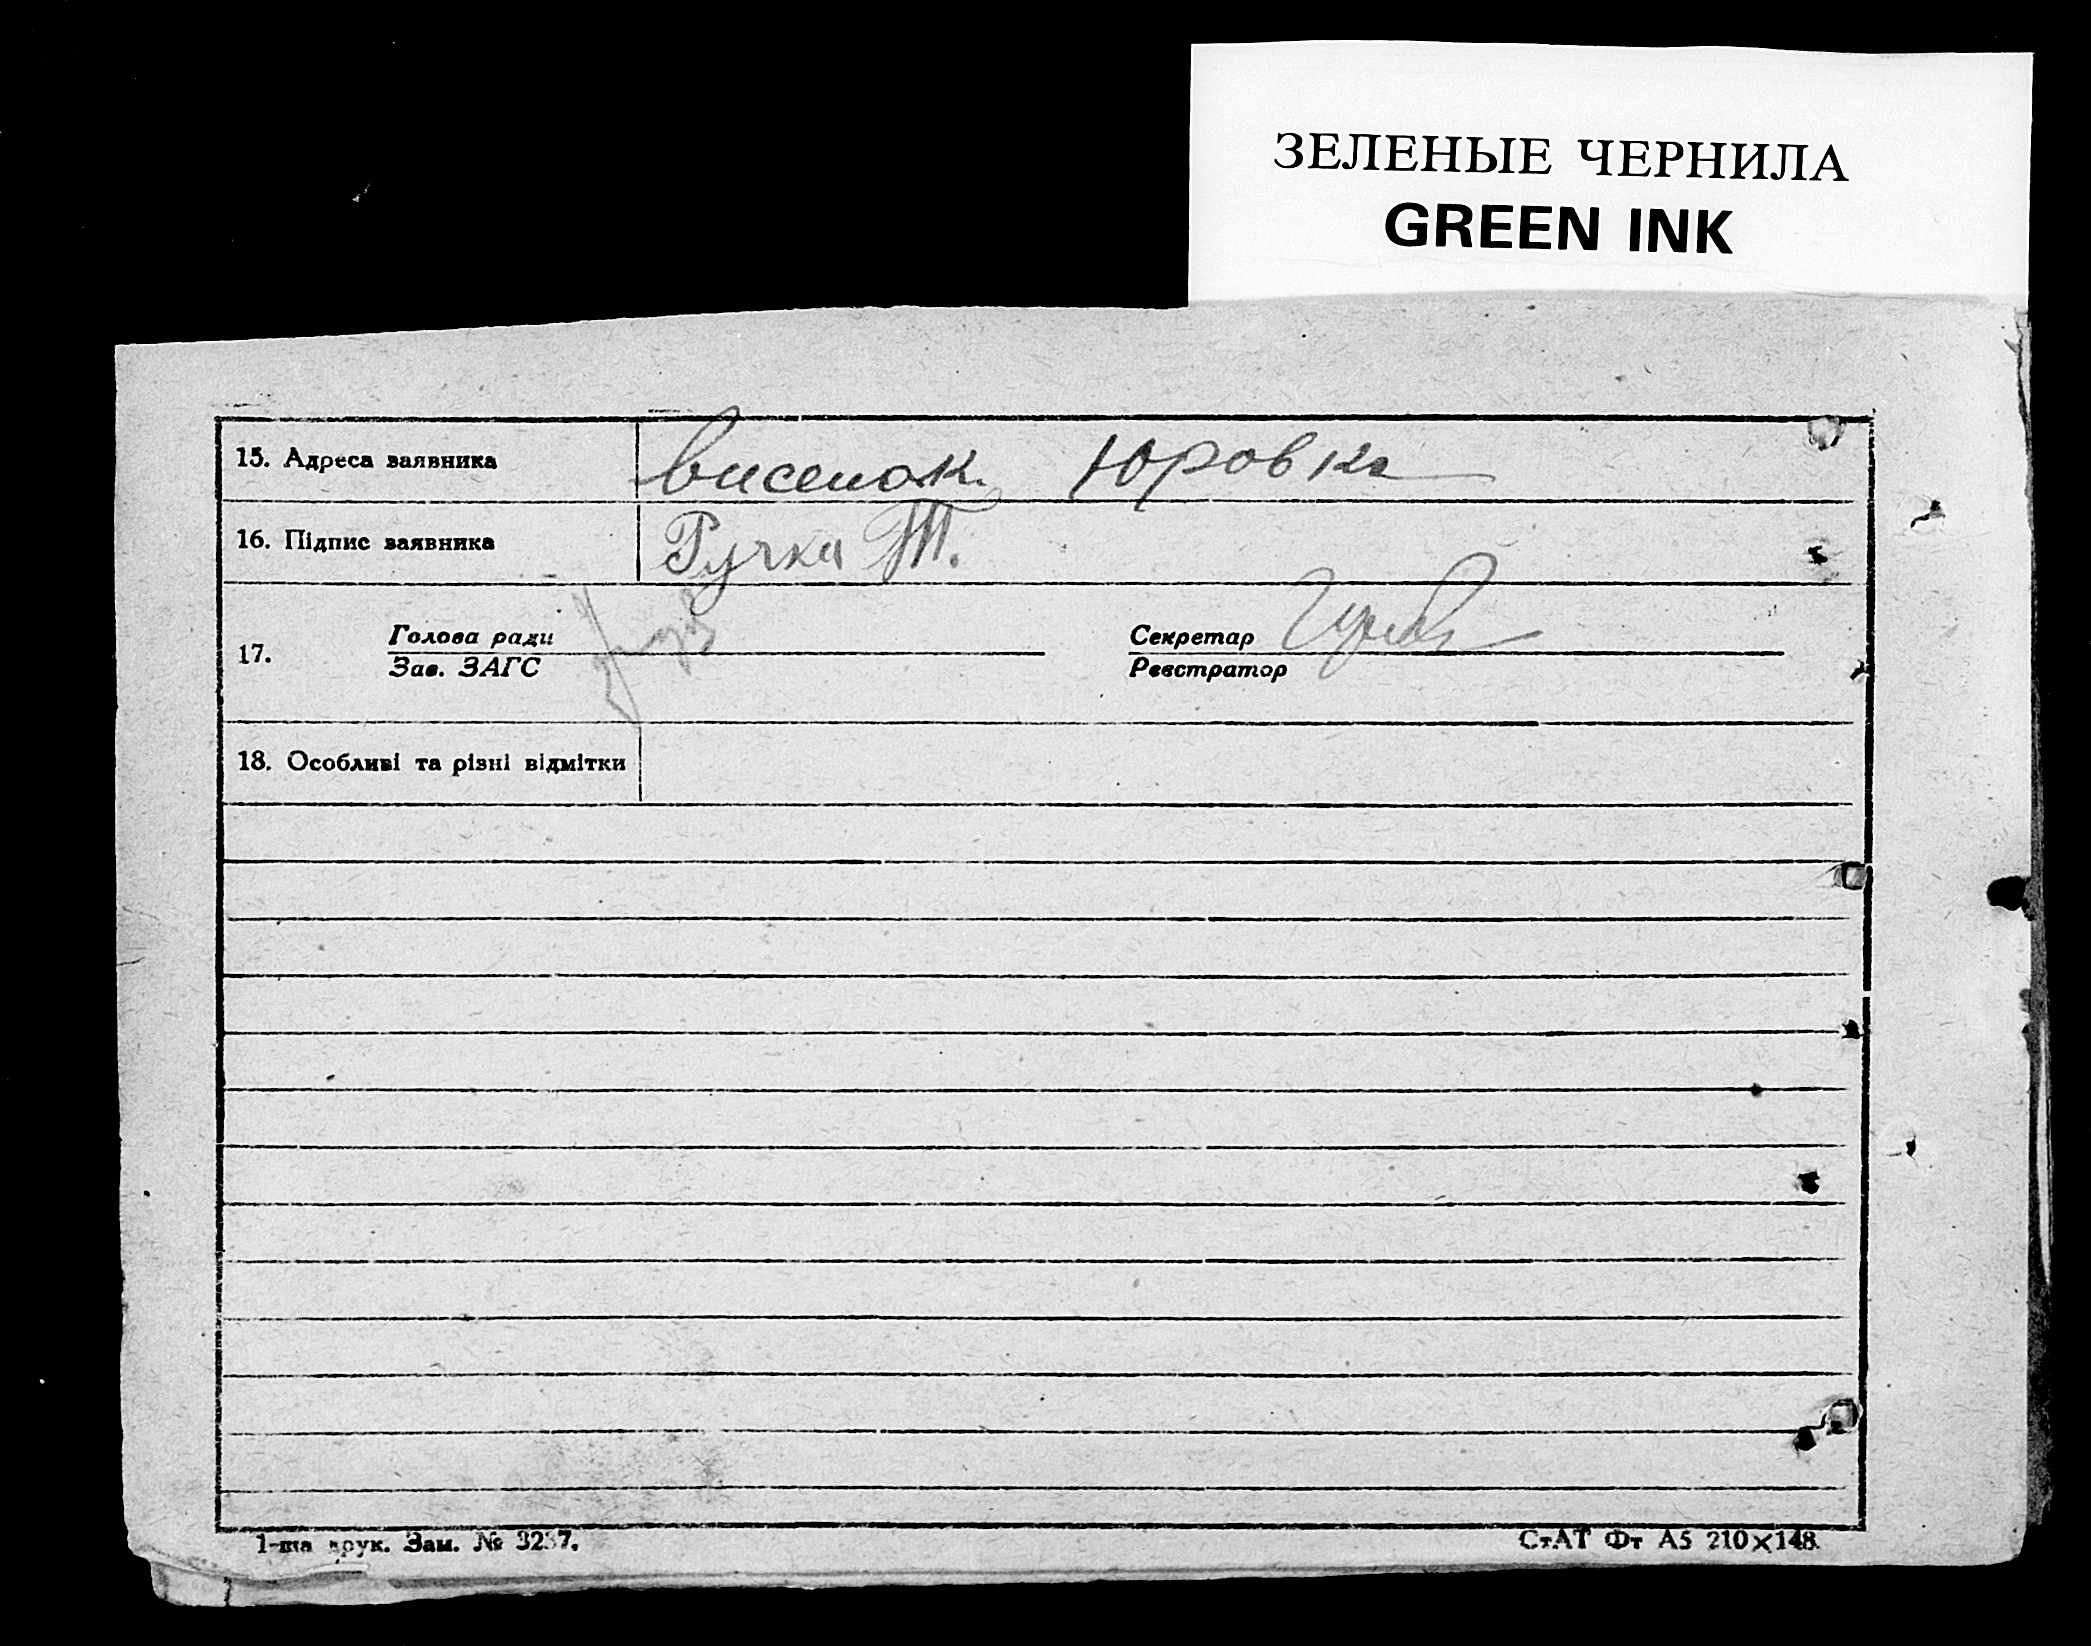 ЗЕЛЕНЫЕ ЧЕРНИЛА
GREEN INK
15. Адреса заявника виселок. Юровка
16. Підпис заявника Ручка Т.
17. Голова ради Секретар
Зав. ЗАГС Реєстратор
18. Особливі та різні відмітки
1-ша друк. Зам. №
СтАТ Фт А5 210×148.